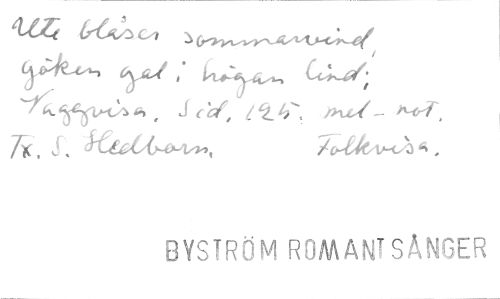 Ute blåser sommarvind,
göken gal i högan lind;
Vaggvisa. Sid. 125. mel-not.
Tx. S. Hedborn. Folkvisa.
BYSTRÖM ROMANTSÅNGER